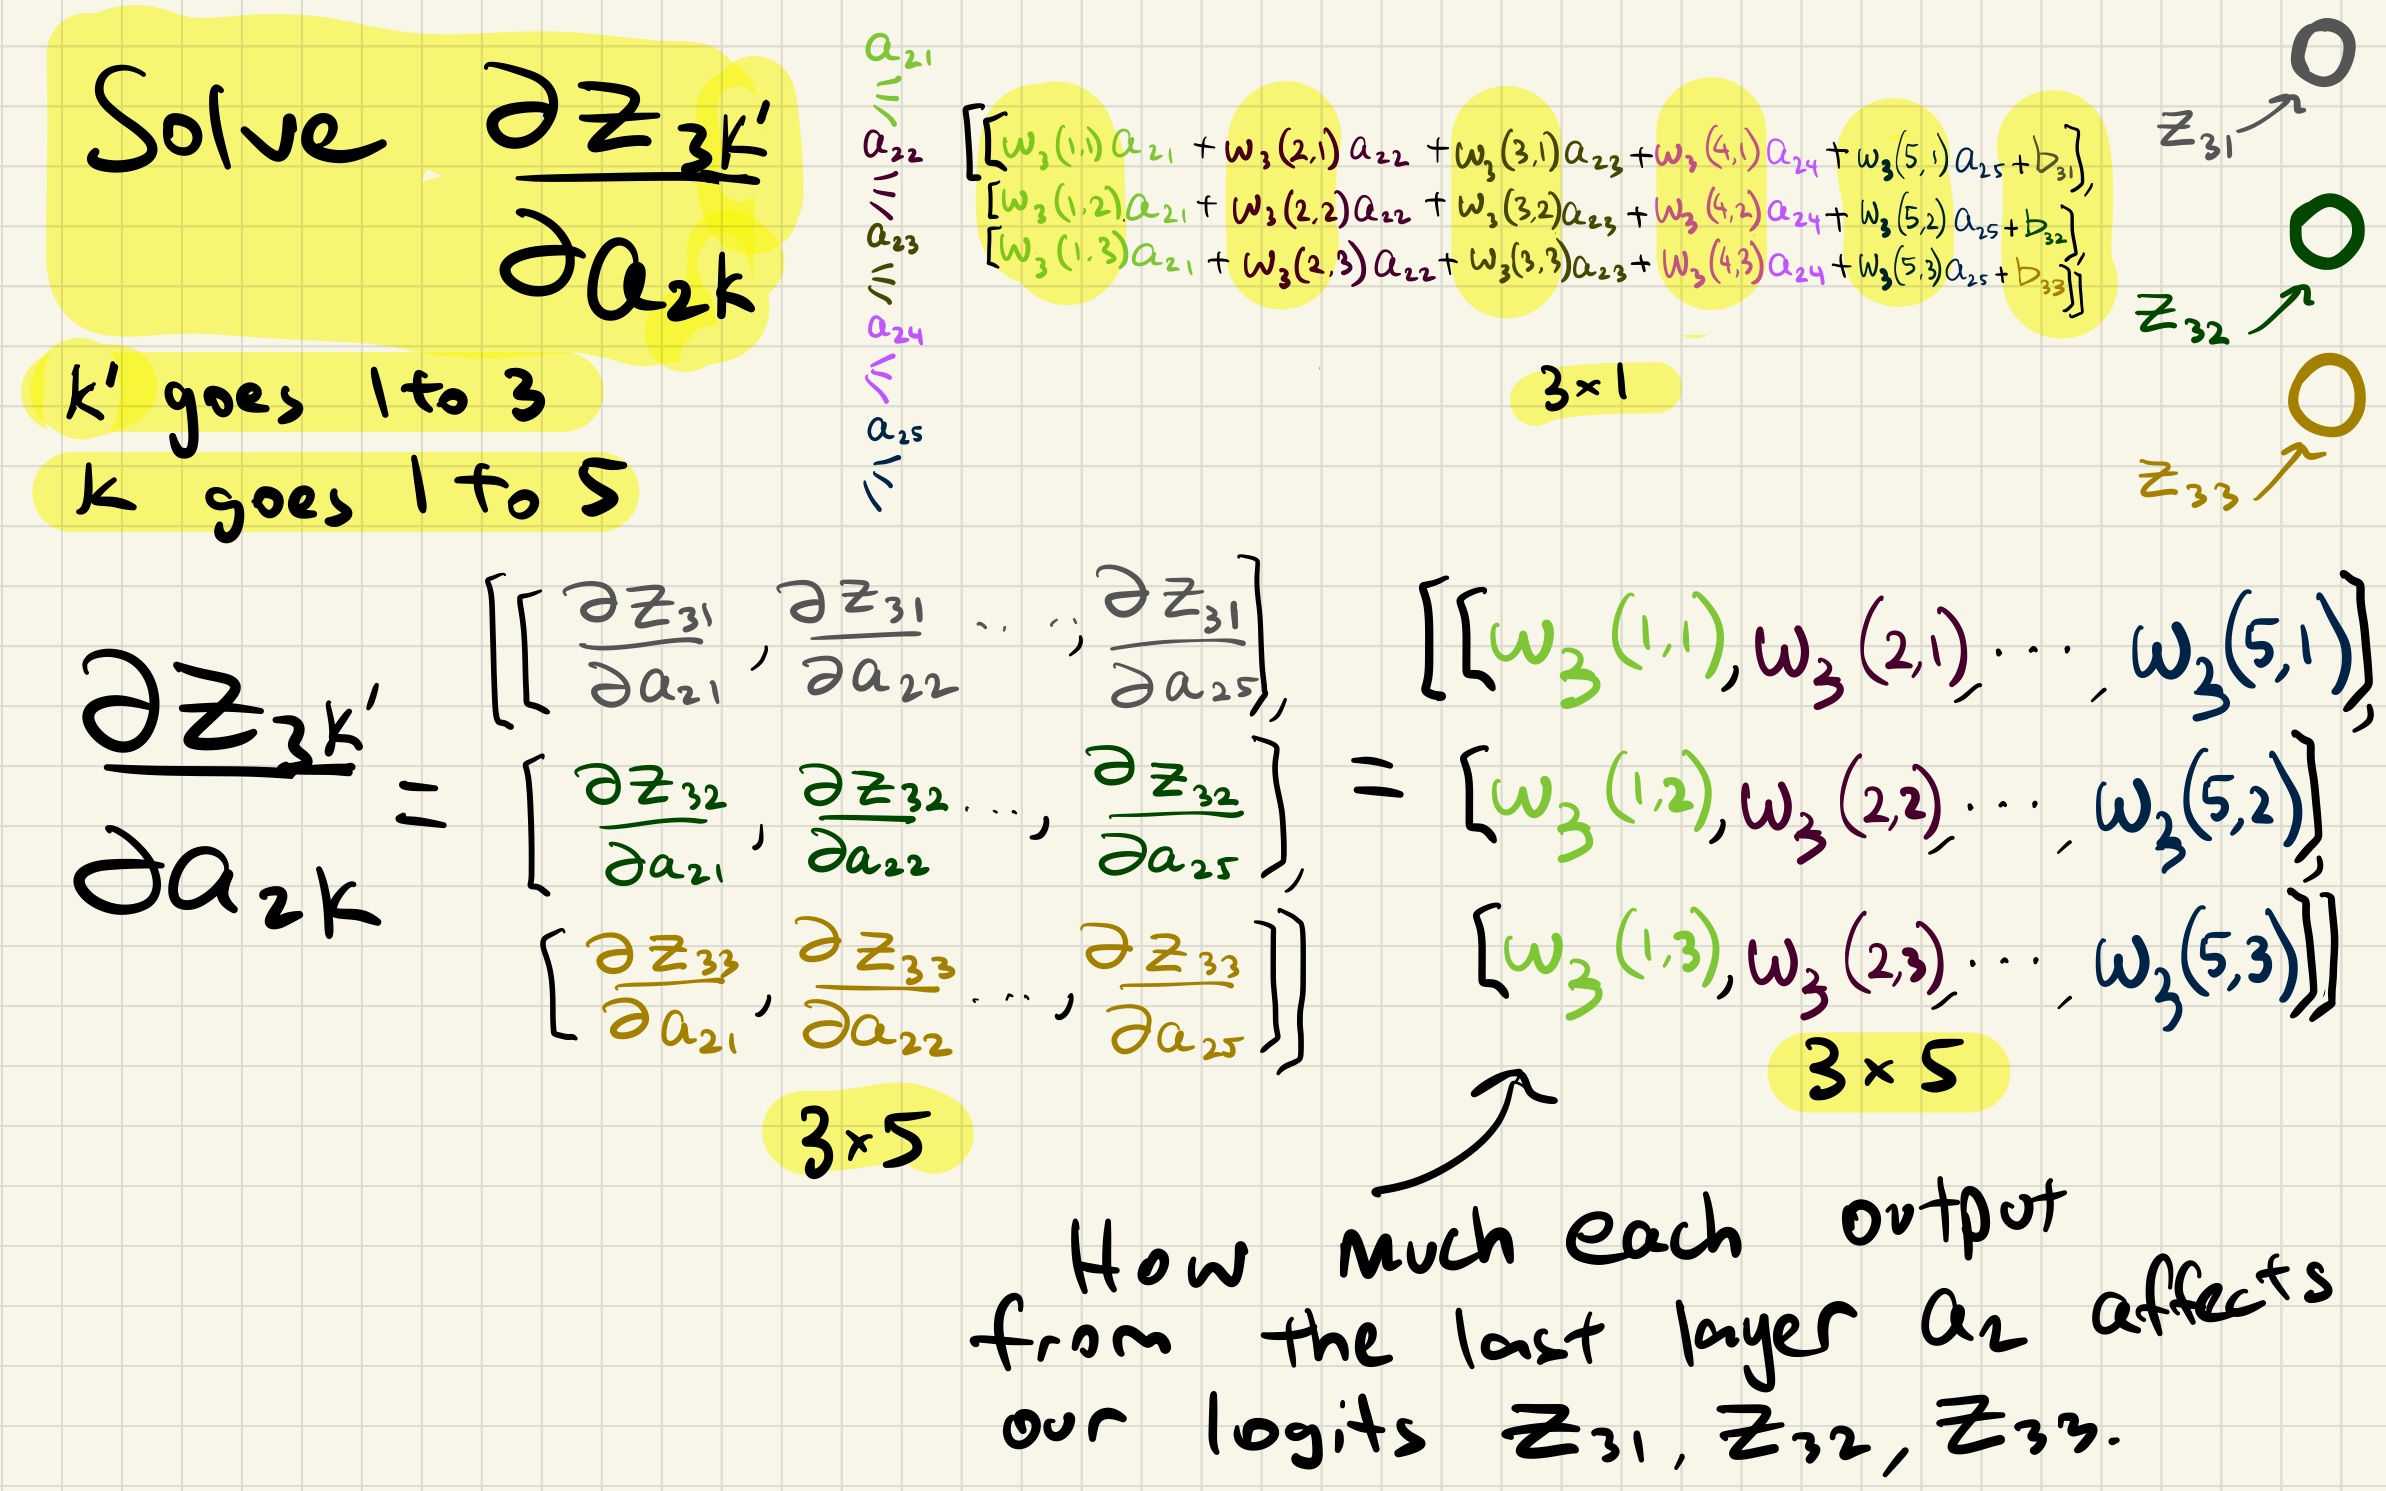 Solve ∂z₃ₖ′ / ∂a₂ₖ
k' goes 1 to 3
k goes 1 to 5
a₂₁
a₂₂
a₂₃
a₂₄
a₂₅
[[w₃(1,1)a₂₁ + w₃(2,1)a₂₂ + w₃(3,1)a₂₃ + w₃(4,1)a₂₄ + w₃(5,1)a₂₅ + b₃₁],
[w₃(1,2)a₂₁ + w₃(2,2)a₂₂ + w₃(3,2)a₂₃ + w₃(4,2)a₂₄ + w₃(5,2)a₂₅ + b₃₂],
[w₃(1,3)a₂₁ + w₃(2,3)a₂₂ + w₃(3,3)a₂₃ + w₃(4,3)a₂₄ + w₃(5,3)a₂₅ + b₃₃]]
3×1
z₃₁
z₃₂
z₃₃
∂z₃ₖ′ / ∂a₂ₖ =
[[∂z₃₁/∂a₂₁, ∂z₃₁/∂a₂₂ ...., ∂z₃₁/∂a₂₅],
[∂z₃₂/∂a₂₁, ∂z₃₂/∂a₂₂ ...., ∂z₃₂/∂a₂₅],
[∂z₃₃/∂a₂₁, ∂z₃₃/∂a₂₂ ...., ∂z₃₃/∂a₂₅]]
3×5
=
[[w₃(1,1), w₃(2,1), ..., w₃(5,1)],
[w₃(1,2), w₃(2,2), ..., w₃(5,2)],
[w₃(1,3), w₃(2,3), ..., w₃(5,3)]]
3×5
How much each output
from the last layer a₂ affects
our logits z₃₁, z₃₂, z₃₃.